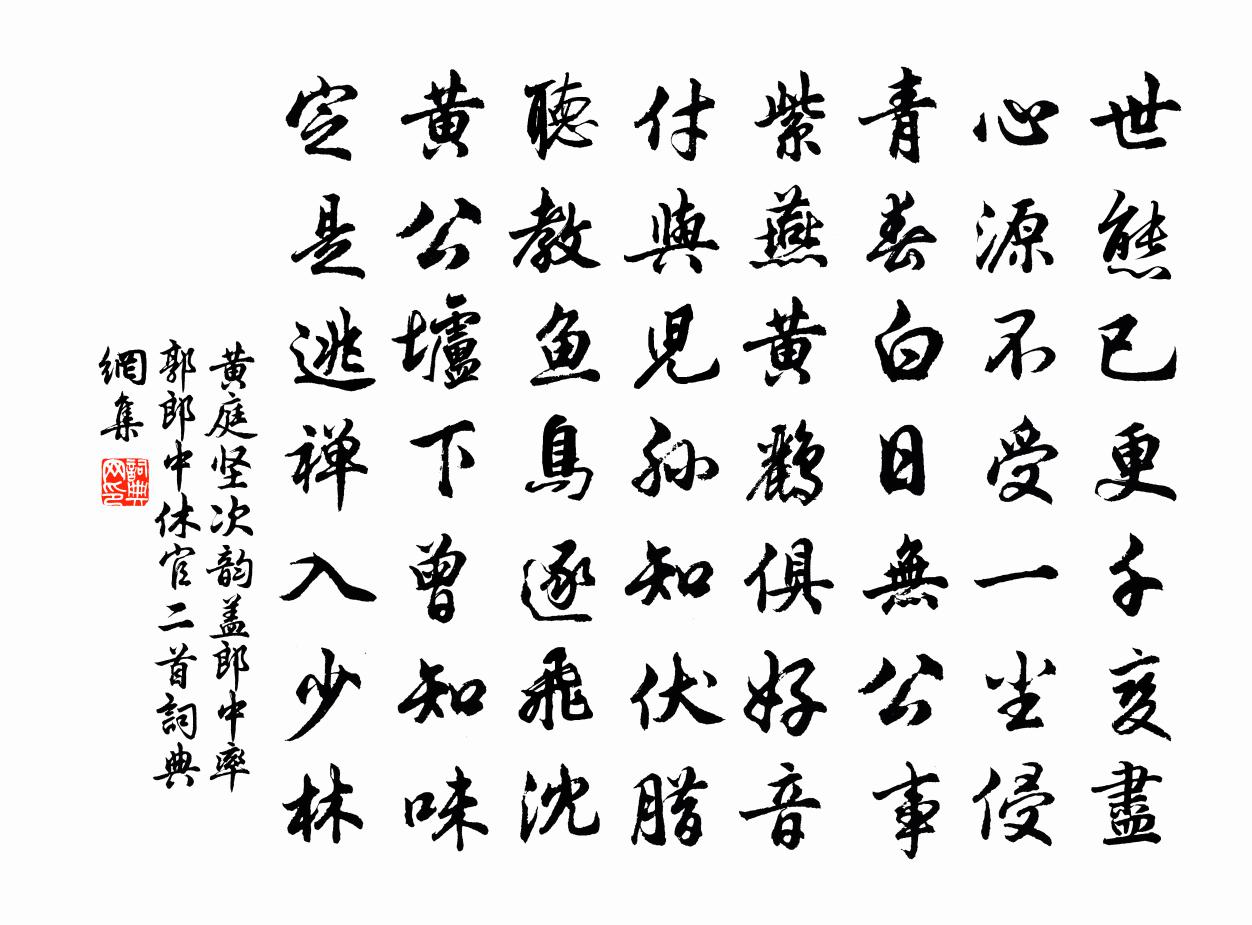 世態已更千变盡
心源不受一尘侵
青春白日無公事
紫燕黄鸝俱好音
付與児孫知伏腊
聴教魚鳥逐飛沈
黄公壚下曾知味
定是逃禅入少林
黄庭坚次韵盖郎中率
郭郎中休官二首詞典
網集
詞典网印